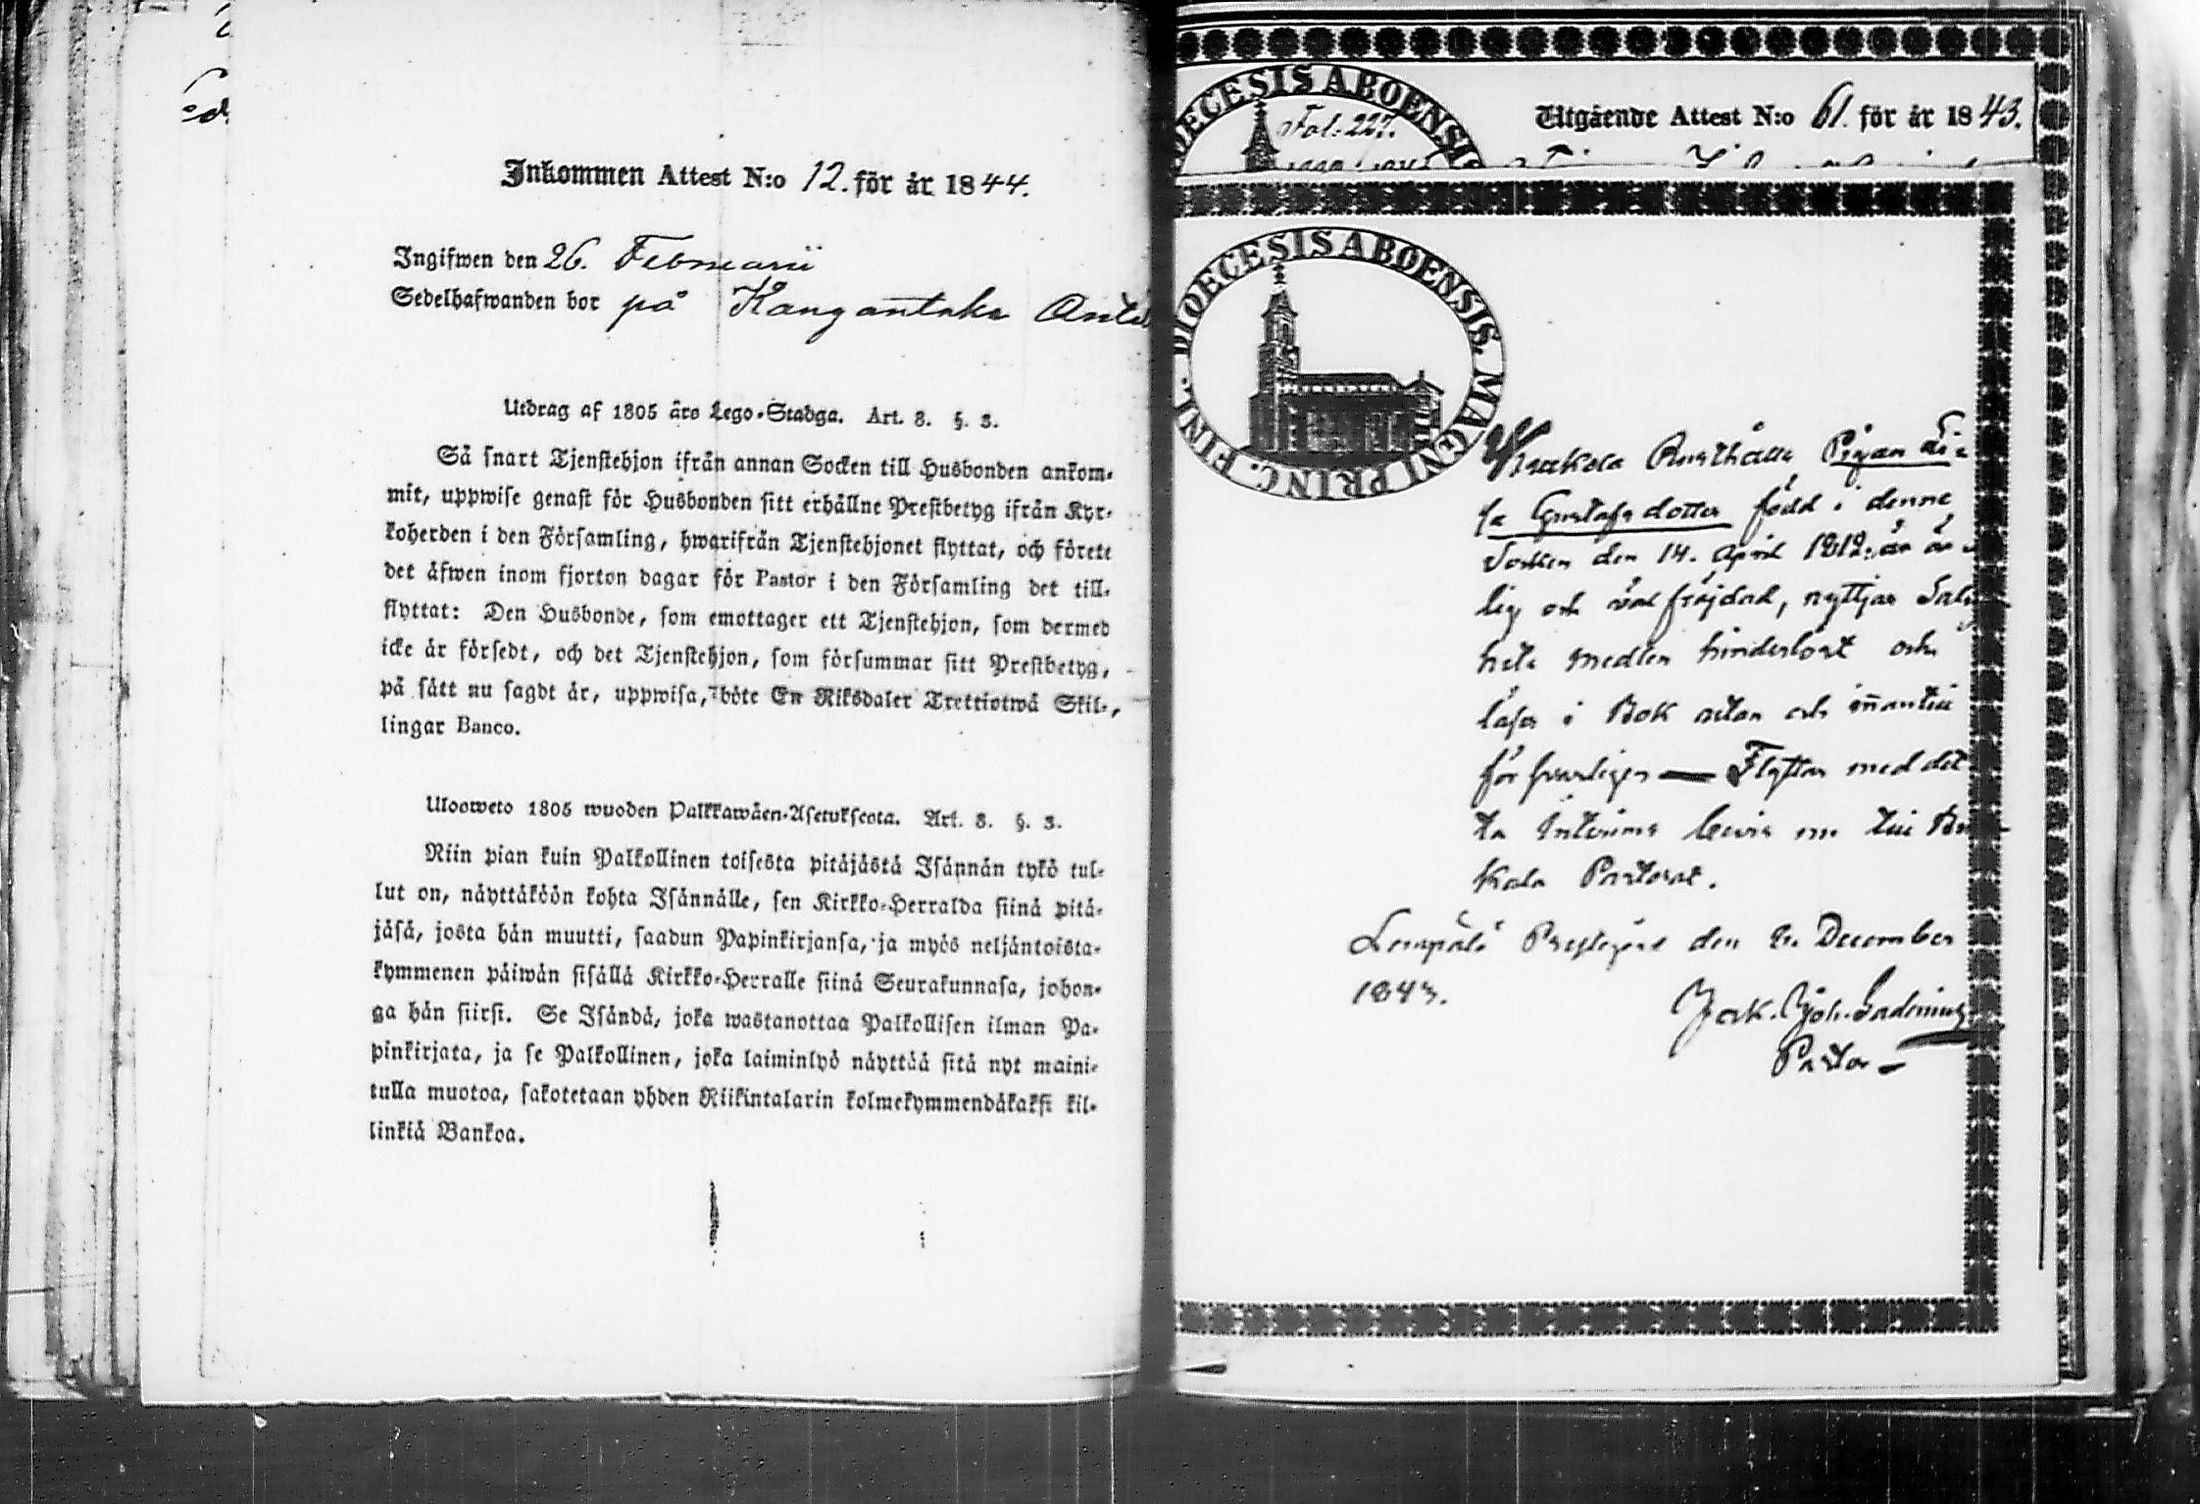 Inkommen Attest N:o 12. för år 1844.
Ingifwen den 26. Februarii
Sedelhafwanden bor på Kangantaka
Utdrag af 1805 års Lego-Stadga. Art. 8. §. 3.
Så snart Tjenstehjon ifrån annan Socken till Husbonden ankom-
mit, uppwise genast för Husbonden sitt erhållne Prestbetyg ifrån Kyr-
koherden i den Församling, hwarifrån Tjenstehjonet flyttat, och förete
det äfwen inom fjorton dagar för Pastor i den Församling det till-
flyttat: Den Husbonde, som emottager ett Tjenstehjon, som dermed
icke är försedt, och det Tjenstehjon, som försummar sitt Prestbetyg,
på sätt nu sagdt är, uppwisa, böte En Riksdaler Trettiotwå Skil-
lingar Banco.
Ulosweto 1805 wuoden Palkkawäen-Asetuksesta. Art. 8. §. 3.
Niin pian kuin Palkollinen toisesta pitäjästä Isännän tykö tul-
lut on, näyttäköön kohta Isännälle, sen Kirkko-Herralda siinä pitä-
jäsä, josta hän muutti, saadun Papinkirjansa, ja myös neljäntoista-
kymmenen päiwän sisällä Kirkko-Herralle siinä Seurakunnasa, johon-
ga hän siirsi. Se Isändä, joka wastanottaa Palkollisen ilman Pa-
pinkirjata, ja se Palkollinen, joka laiminlyö näyttää sitä nyt maini-
tulla muotoa, sakotetaan yhden Riikintalarin kolmekymmendäkaksi kil-
linkiä Bankoa.
DIOECESIS ABOENSIS
Fol. 227.
Utgående Attest N:o 61. för år 1843.
DIOECESIS ABOENSIS. MAGNI PRINC. FINL.
Rusthålls Pigan Li-
sa Gustafsdotter född i denne
Socken den 14. April 1812: är är-
lig och väl fräjdad, nyttjar Salig-
hets medlen hinderlöst och
läser i Bok utan och innantill
försvarligen — Flyttar med det-
ta Interims bevis nu till
kala Pastorat.
Lempälä Prestegård den December
1843.
Jak. Joh.
Pastor